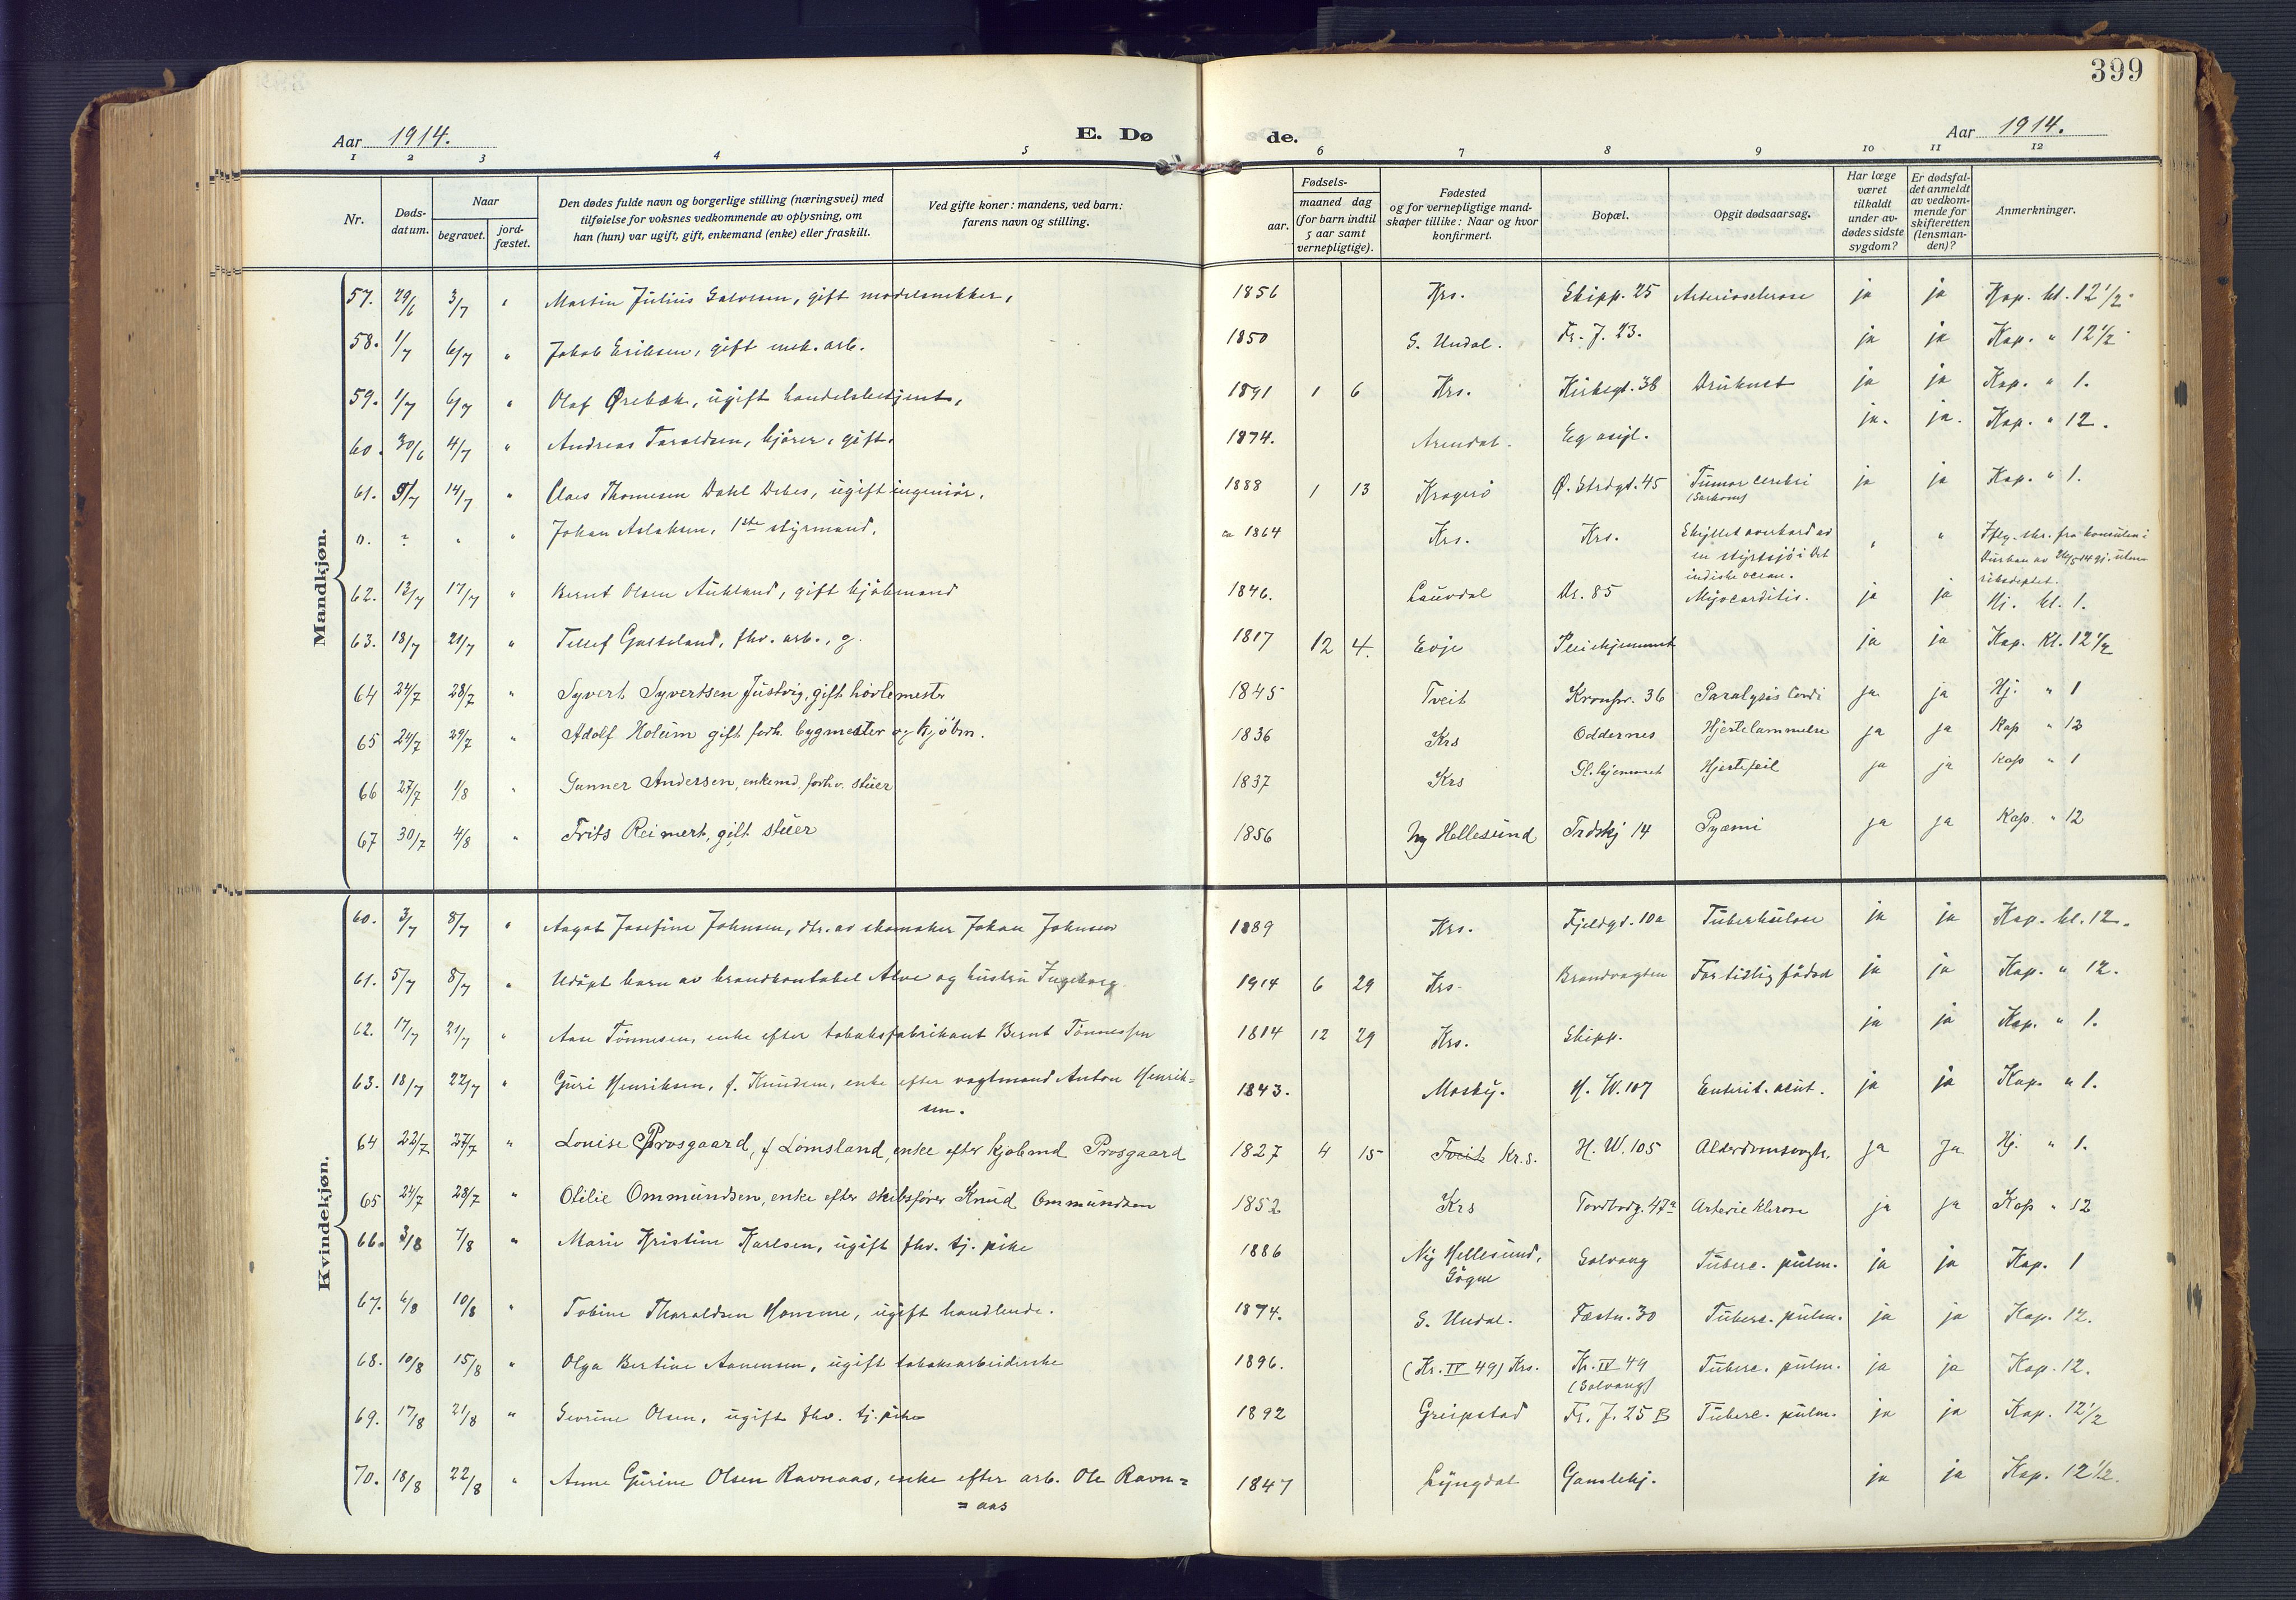 399
Aar 1914.
E. Dø
de.
Aar 1914.
1 2 3 4 5 6 7 8 9 10 11 12
Nr.
Døds-
datum.
Naar
begravet.
jord-
fæstet.
Den dødes fulde navn og borgerlige stilling (næringsvei) med
tilføielse for voksnes vedkommende av oplysning, om
han (hun) var ugift, gift, enkemand (enke) eller fraskilt.
Ved gifte koner: mandens, ved barn:
farens navn og stilling.
Fødsels-
aar.
maaned dag
(for barn indtil
5 aar samt
vernepligtige).
Fødested
og for vernepligtige mand-
skaper tillike: Naar og hvor
konfirmert.
Bopæl.
Opgit dødsaarsag.
Har læge
været
tilkaldt
under av-
dødes sidste
sygdom?
Er dødsfal-
det anmeldt
av vedkom-
mende for
skifteretten
(lensman-
den)?
Anmerkninger.
Mandkjøn.
57. 29/6 3/7 " Martin Julius Salvesen, gift modelsnekker, 1856 Krs. Skipp. 25 Arteriosclerose ja ja Kap. kl. 12 1/2
58. 1/7 6/7 " Jakob Eriksen, gift mek. arb. 1850 S. Undal. Fr. J. 23. ja ja Kap. " 12 1/2
59. 1/7 6/7 " Olaf Ørebæk, ugift handelsbetjent, 1891 1 6 Krs. Kirkegt. 38 Druknet ja ja Kap. " 1.
60. 30/6 4/7 " Andreas Taraldsen, kjører, gift. 1874. Arendal. Eg asyl. ja. ja. Kap. " 12.
61. 9/7 14/7 " Claes Thomesen Dahl Debes, ugift ingeniør. 1888 1 13 Kragerø Ø. Strdgt. 45 Tumor cerebri ja ja Kap. " 1.
(Sarkom)
0. ? " " Johan Aslaksen, 1ste styrmand. ca 1864 Krs. Krs. Skyllet overbord av " " Iflg. skr. fra konsulen i
en styrtsjø i Det
indiske ocean.
Durban av 26/5 14 gj. uten-
riksdeptet.
62. 12/7 17/7 " Bernt Olsen Aukland, gift kjøbmand 1846. Lauvdal Dr. 85 Myocarditis. ja ja Hj. kl. 1.
63. 18/7 21/7 " Tellef Gaseland, fhv. arb., g. 1817 12 4. Evje Pleiehjemmet ja ja Kap. Kl. 12 1/2
64 24/7 28/7 " Syvert Syvertsen Justvig, gift høvlemester 1845 Tveit Kronpr. 36 Paralysis Cordi ja ja Hj. " 1
65 24/7 29/7 " Adolf Holum gift forh. bygmester og kjøbm. 1836 Krs Oddernes Hjertelammelse ja ja Kap " 12
66 27/7 1/8 " Gunner Andersen, enkemd. forhv. stuer 1837 Krs Gl. hjemmet Hjertefeil ja ja Kap " 1
67 30/7 4/8 " Frits Reimert, gift stuer 1856 Ny Hellesund Trdskj 14 Pyæmi ja ja Kap. " 12
Kvindekjøn.
60. 3/7 8/7 " Aagot Josefine Johnsen, dtr. av skomaker Johan Johnsen 1889 Krs. Fjeldgt. 10a Tuberkulose ja ja Kap. kl. 12.
61. 5/7 8/7 " Udøpt barn av brandkonstabel Alve og hustru Ingeborg 1914 6 29 Krs. Brandvagten For tidlig født ja ja Kap. " 12.
62. 17/7 21/7 " Aase Tønnesen, enke efter tobaksfabrikant Bernt Tønnessen 1814 12 29 Krs. Skipp. ja ja Kap. " 1.
63. 18/7 22/7 " Guri Henriksen, f. Knudsen, enke efter vagtmand Anton Henrik- 1843. Mosby. H. W. 107 Enterit. acut. ja ja Kap. " 1.
sen.
64 22/7 27/7 " Louise Prosgaard, f Lomsland, enke efter kjøbmd Prosgaard 1827 4 15 Tveit Kr.s. H. W. 105 Alderdomssvagh. ja ja Hj. " 1.
65 24/7 28/7 " Olilie Ommundsen, enke efter skibsfører Knud Ommundsen 1852 Krs Tordbodg. 47a Arterie klerose ja ja Kap " 12
66. 3/8 7/8 " Marie Kristine Karlsen, ugift fhv. tj. pike 1886 Ny Hellesund, Solvang Tuberc. pulm. ja ja Kap. 1
Søgne
67. 6/8 10/8 " Tobine Tharaldsen Homme, ugift handlende. 1874. S. Undal. Festn. 30 Tuberc. pulm. ja ja Kap. 12.
68. 10/8 15/8 " Olga Bertine Aanensen, ugift tobaksarbeiderske 1896. (Kr. IV 49) Krs. Kr. IV 49 Tuberc. pulm. ja ja Kap. 12.
(Solvang)
69. 17/8 21/8 " Severine Olsen, ugift fhv. tj. pike 1892 Greipstad Fr. J. 25 B Tuberc. pulm. ja ja Kap. 12 1/2
70. 18/8 22/8 " Anne Gurine Olsen Ravnaas, enke efter arb. Ole Ravn= 1847 Lyngdal Gamlehj. ja ja Kap. 12 1/2.
= aas